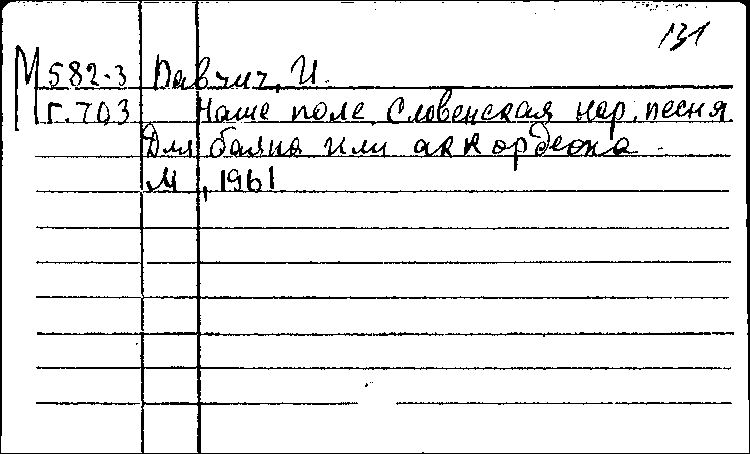 131
М 582-3 Павчич, И.
Г.703 Наше поле. Словенская нар. песня.
Для баяна или аккордеона.
М, 1961